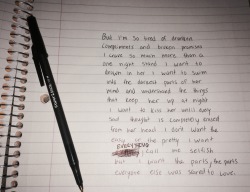 But I'm so tired of
compliments and broken promises
I crave so much more than a
one night stand I want to
drown in her I want to swim
into the darkest parts of her
mind and understand the things
that keep her up at night
I want to kiss her until every
sad thought is completely erased
from her head I don't want the
easy or the pretty I want
EVERYTHING, call me selfish
but I want the parts, the parts
everyone else was scared to love.